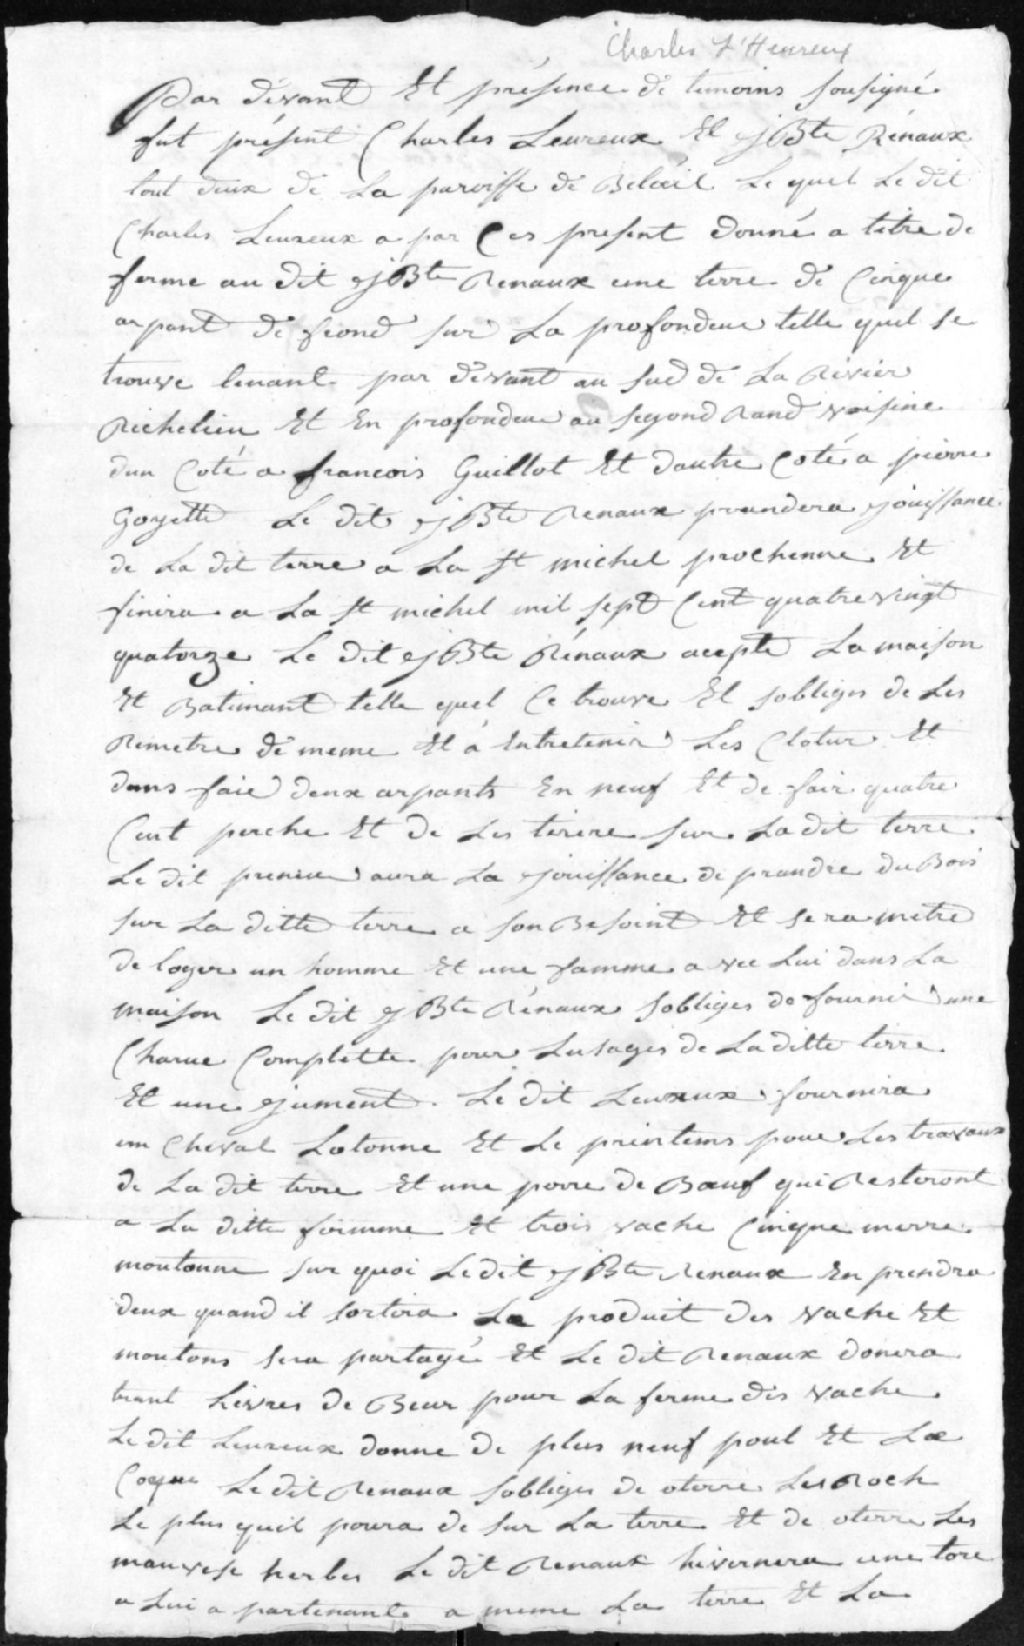 Charles L'Heureux
Par devant Et présence de temoins sousigné
fut présent Charles Leureux Et jBte Rénaux
tout deux de La paroisse de Belœil Le quel Le dit
Charles Leureux a par Ces present donné a titre de
ferme au dit jBte Renaux une terre de Cinque
arpant de front sur La profondeur telle quel se
trouve tenant par devant au sud de La Rivier
Richelieu Et En profondeur au segond Rand voisine
dun Coté a francois Guillot Et dautre Coté a pierre
Goyette Le dit jBte Renaux prandera jouissance
de La dit terre a La St michel prochenne Et
finira a La St michel mil sept Cent quatre vingt
quatorze Le dit jBte Rénaux acepte La maison
Et Batimant telle quel Ce trouve Et sobliges de Les
Remetre de meme Et á Entretenir Les Clotur Et
dans faie deux arpants En neuf Et de fair quatre
Cent perche Et de Les tirere sur La dit terre
Le dit preneur aura La jouissance de prandre du Bois
sur La ditte terre a son Besoint Et sera metre
de loger un homme Et une famme a vec Lui dans La
maison Le dit jBte Rénaux sobliges de fournir une
Charue Complette pour Lusages de La ditte terre
Et une jument. Le dit Leureux fournira
un Cheval Lotonne Et Le printems pour Les travaux
de La dit terre Et une porre de Bœuf qui Resteront
a La ditte Et trois vache Cinque merre
moutonne sur quoi Le dit jBte Renaux En prendra
deux quand il sortira La produit des vache Et
moutons sera partagé Et Le dit Renaux donera
trant Livres de Beur pour La ferme des vache
Le dit Leureux donne de plus neuf poul Et Le
Coque Le dit Renaux sobliges de oterre Les Roch
Le plus quil poura de sur La terre Et de oterre Les
mauvese herbes Le dit Renaux hivernera une tore
a Lui a partenante a meme La terre Et La